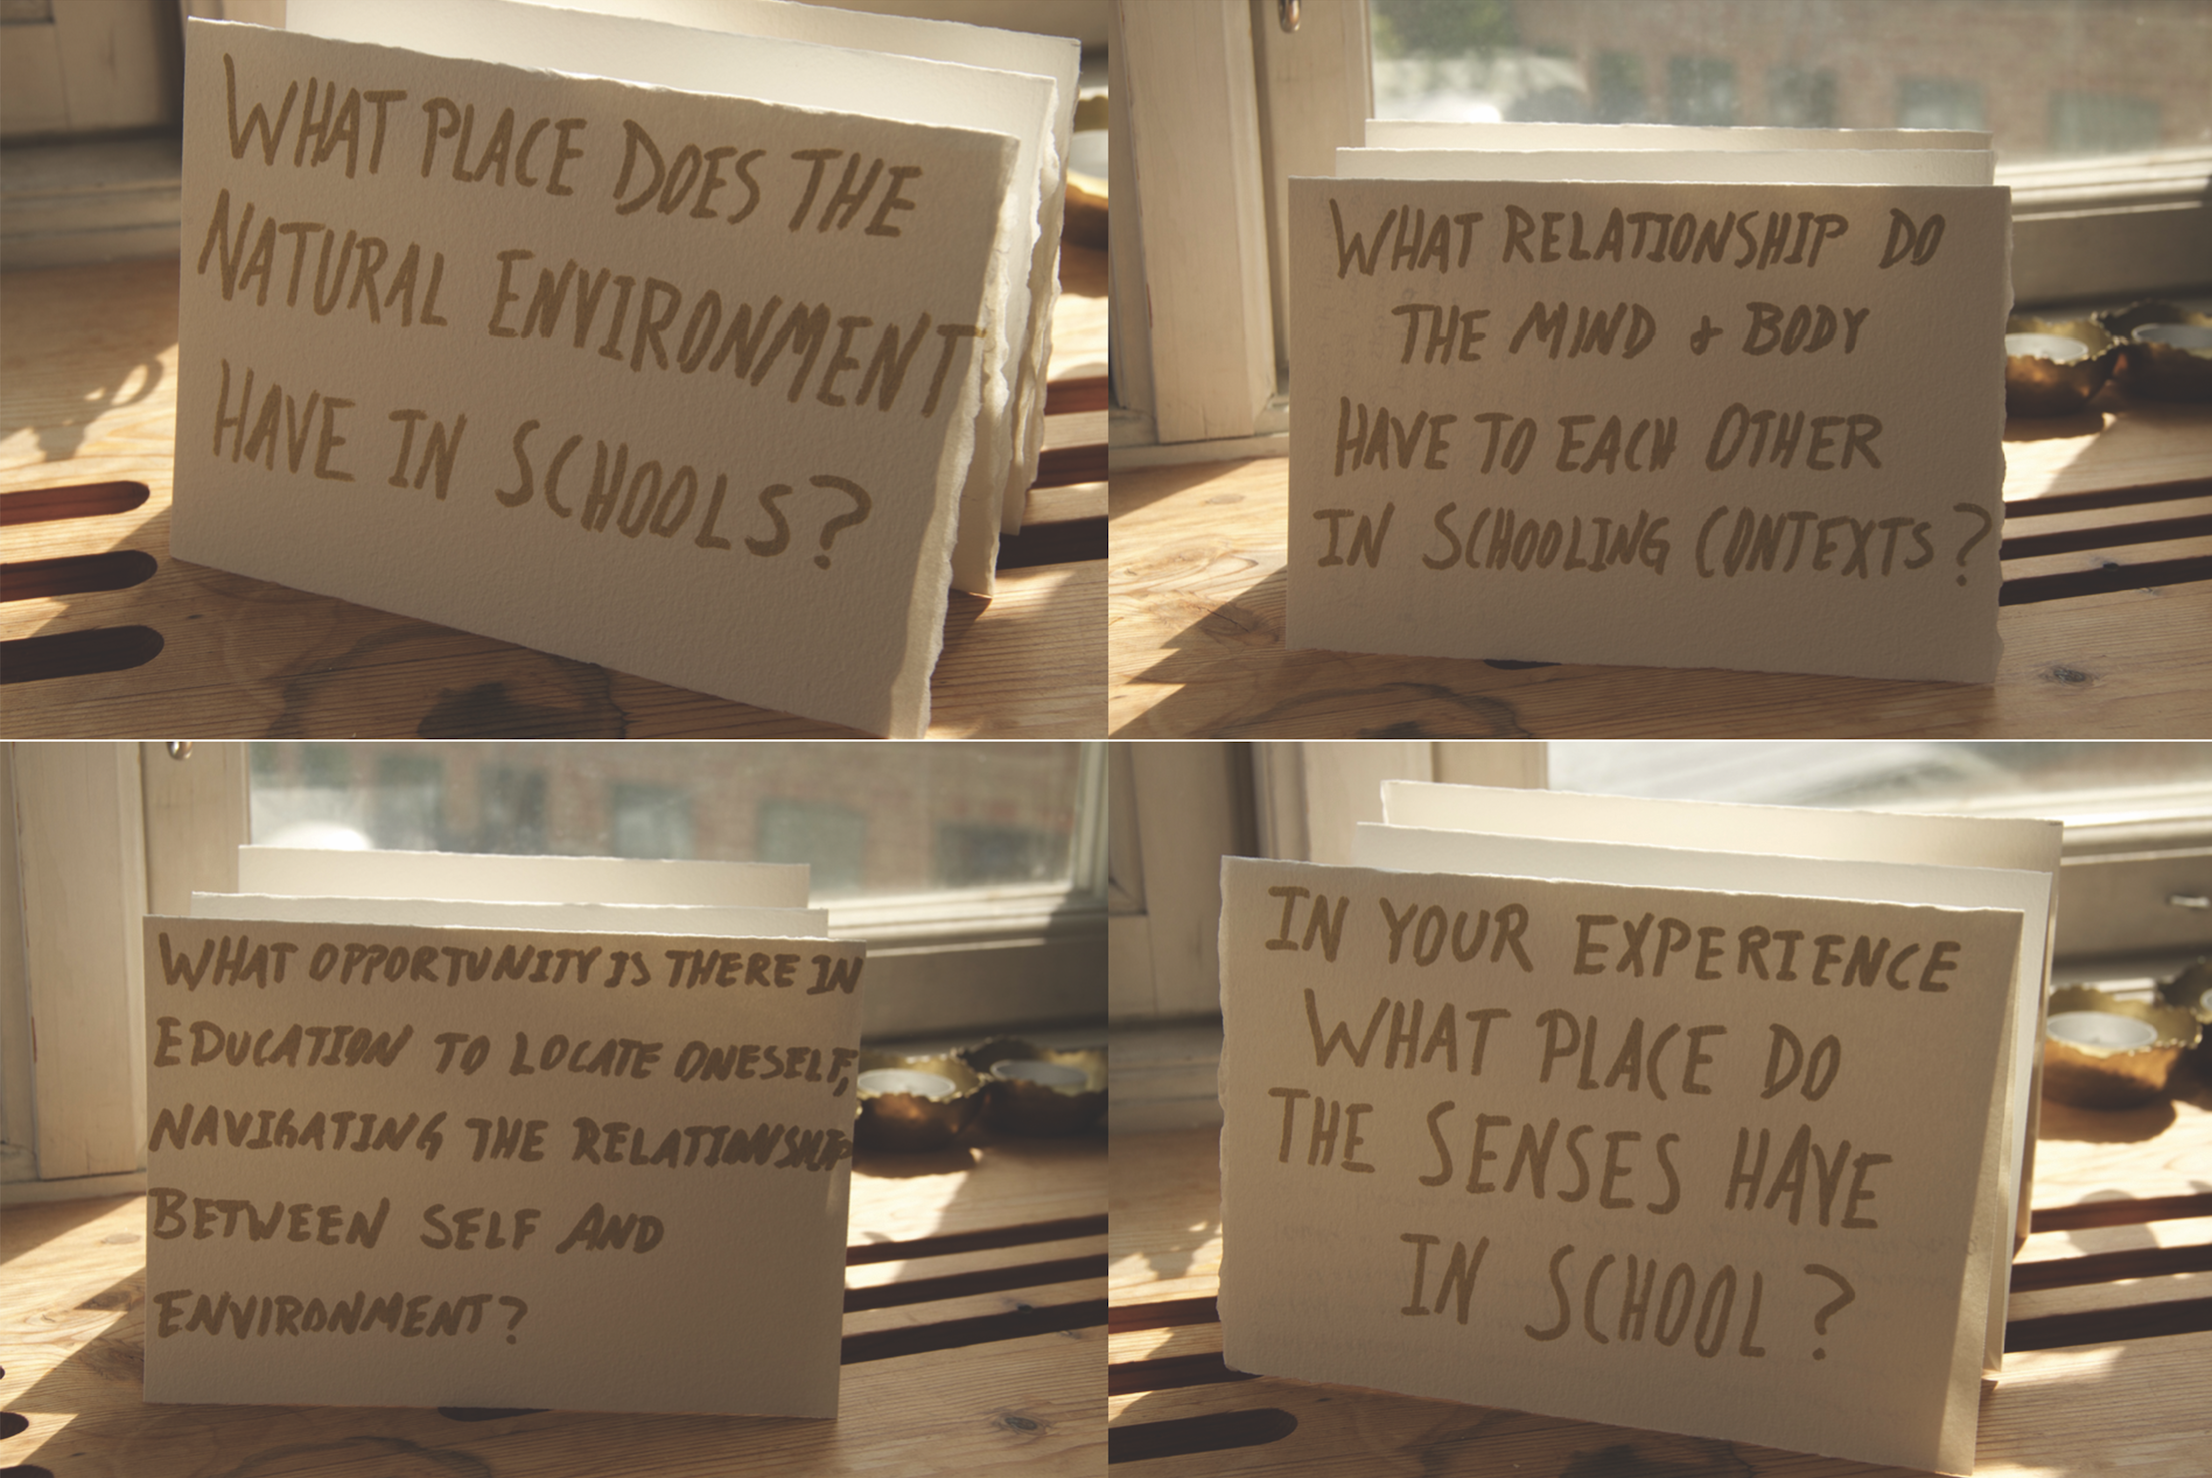 WHAT PLACE DOES THE
NATURAL ENVIRONMENT
HAVE IN SCHOOLS?
WHAT RELATIONSHIP DO
THE MIND & BODY
HAVE TO EACH OTHER
IN SCHOOLING CONTEXTS?
WHAT OPPORTUNITY IS THERE IN
EDUCATION TO LOCATE ONESELF,
NAVIGATING THE RELATIONSHIP
BETWEEN SELF AND
ENVIRONMENT?
IN YOUR EXPERIENCE
WHAT PLACE DO
THE SENSES HAVE
IN SCHOOL?